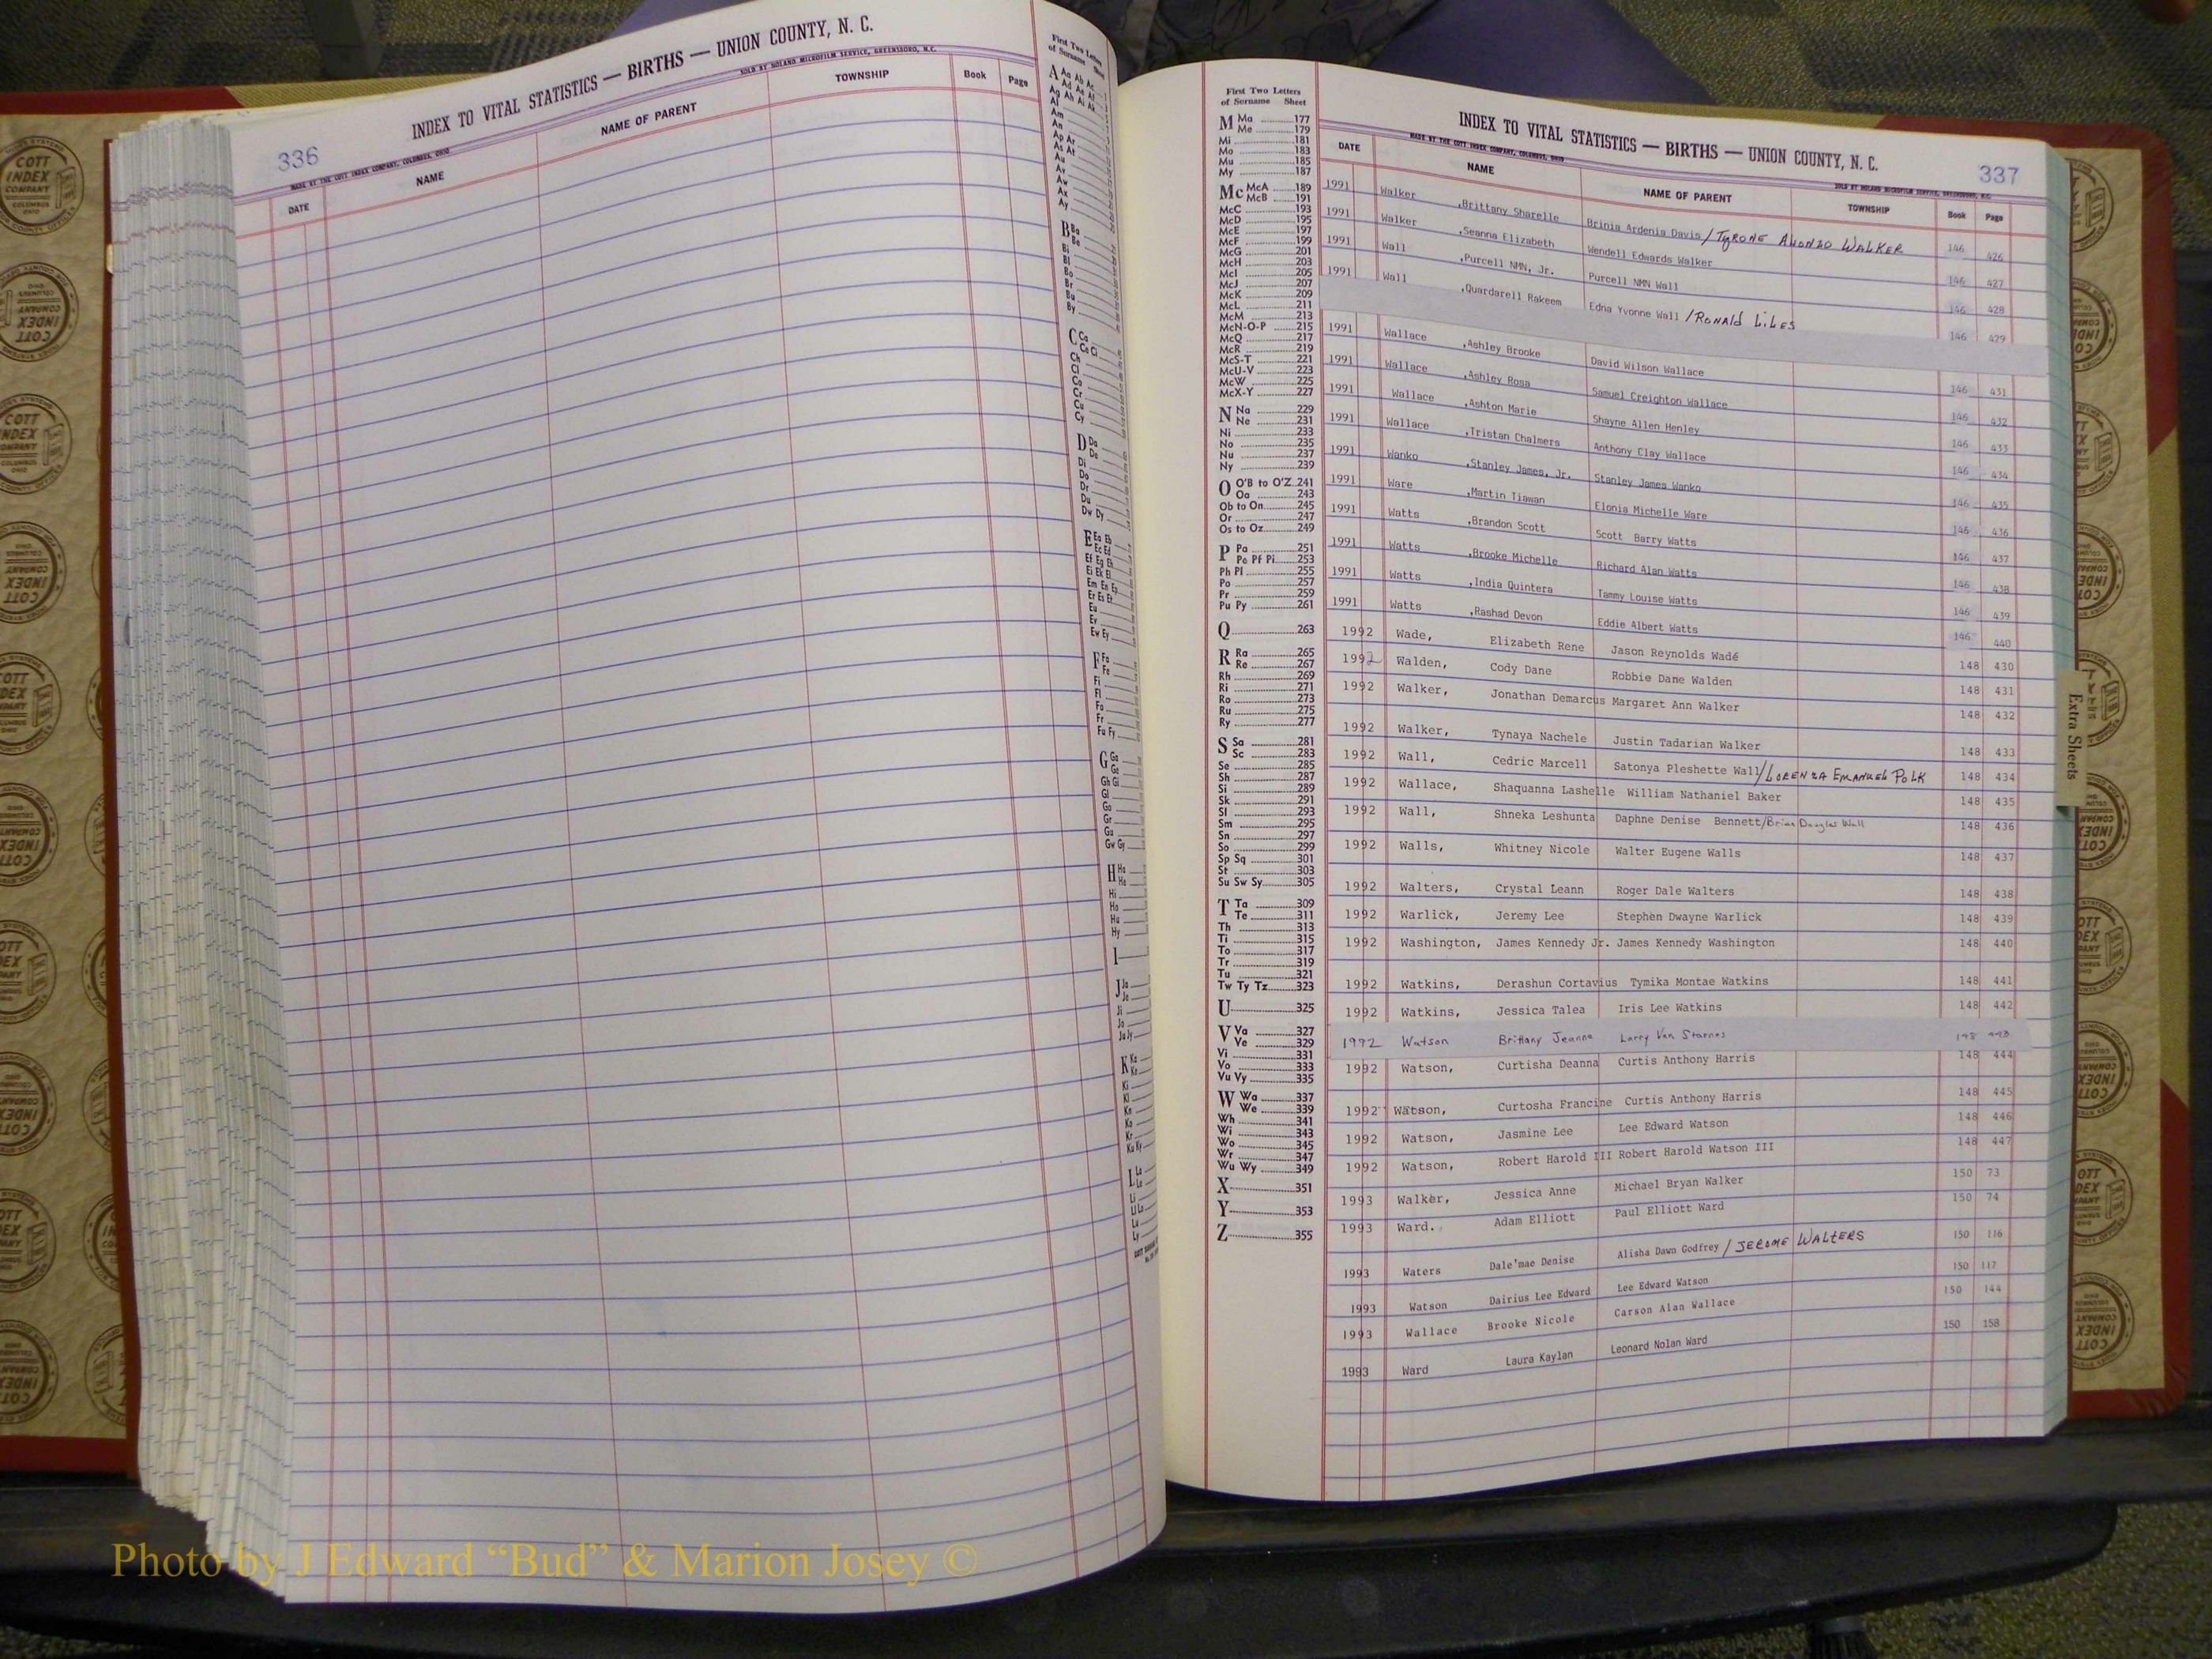 336
INDEX TO VITAL STATISTICS — BIRTHS — UNION COUNTY, N. C.
MADE BY THE COTT INDEX COMPANY, COLUMBUS, OHIO
SOLD BY NOLAND MICROFILM SERVICE, GREENSBORO, N.C.
DATE NAME NAME OF PARENT TOWNSHIP Book Page
First Two Letters
of Surname Sheet
A Aa Ab Ac
Ad Ae Af
Ag Ah Ai Ak
Al
Am
An
Ap Ar
As At
Au
Av
Aw
Ax
Ay
B Ba
Be
Bi
Bl
Bo
Br
Bu
By
C Ca
Ce Ci
Ch
Cl
Co
Cr
Cu
Cy
D Da
De
Di
Do
Dr
Du
Dw Dy
E Ea Eb
Ec Ed
Ef Eg Eh
Ei Ek El
Em En Ep
Er Es Et
Eu
Ev
Ew Ey
F Fa
Fe
Fi
Fl
Fo
Fr
Fu Fy
G Ga
Ge
Gh Gi
Gl
Go
Gr
Gu
Gw Gy
H Ha
He
Hi
Ho
Hu
Hy
I
J Ja
Je
Ji
Jo
Ju Jy
K Ka
Ke
Ki
Kl
Kn
Ko
Kr
Ku Ky
L La
Le
Li
Ll Lo
Lu
Ly
First Two Letters
of Surname Sheet
M Ma 177
Me 179
Mi 181
Mo 183
Mu 185
My 187
Mc McA 189
McB 191
McC 193
McD 195
McE 197
McF 199
McG 201
McH 203
McI 205
McJ 207
McK 209
McL 211
McM 213
McN-O-P 215
McQ 217
McR 219
McS-T 221
McU-V 223
McW 225
McX-Y 227
N Na 229
Ne 231
Ni 233
No 235
Nu 237
Ny 239
O O'B to O'Z 241
Oa 243
Ob to On 245
Or 247
Os to Oz 249
P Pa 251
Pe Pf Pi 253
Ph Pl 255
Po 257
Pr 259
Pu Py 261
Q 263
R Ra 265
Re 267
Rh 269
Ri 271
Ro 273
Ru 275
Ry 277
S Sa 281
Sc 283
Se 285
Sh 287
Si 289
Sk 291
Sl 293
Sm 295
Sn 297
So 299
Sp Sq 301
St 303
Su Sw Sy 305
T Ta 309
Te 311
Th 313
Ti 315
To 317
Tr 319
Tu 321
Tw Ty Tz 323
U 325
V Va 327
Ve 329
Vi 331
Vo 333
Vu Vy 335
W Wa 337
We 339
Wh 341
Wi 343
Wo 345
Wr 347
Wu Wy 349
X 351
Y 353
Z 355
INDEX TO VITAL STATISTICS — BIRTHS — UNION COUNTY, N. C.
337
MADE BY THE COTT INDEX COMPANY, COLUMBUS, OHIO
SOLD BY NOLAND MICROFILM SERVICE, GREENSBORO, N.C.
DATE NAME NAME OF PARENT TOWNSHIP Book Page
1991 Walker ,Brittany Sharelle Brinia Ardenia Davis / TyRONE ALONZO WALKER 146 426
1991 Walker ,Seanna Elizabeth Wendell Edwards Walker 146 427
1991 Wall ,Purcell NMN, Jr. Purcell NMN Wall 146 428
1991 Wall ,Quardarell Rakeem Edna Yvonne Wall /RONAld LiLES 146 429
1991 Wallace ,Ashley Brooke David Wilson Wallace 146 431
1991 Wallace ,Ashley Rosa Samuel Creighton Wallace 146 432
1991 Wallace ,Ashton Marie Shayne Allen Henley 146 433
1991 Wallace ,Tristan Chalmers Anthony Clay Wallace 146 434
1991 Wanko ,Stanley James, Jr. Stanley James Wanko 146 435
1991 Ware ,Martin Tiawan Elonia Michelle Ware 146 436
1991 Watts ,Brandon Scott Scott Barry Watts 146 437
1991 Watts ,Brooke Michelle Richard Alan Watts 146 438
1991 Watts ,India Quintera Tammy Louise Watts 146 439
1991 Watts ,Rashad Devon Eddie Albert Watts 146 440
1992 Wade, Elizabeth Rene Jason Reynolds Wade 148 430
1992 Walden, Cody Dane Robbie Dane Walden 148 431
1992 Walker, Jonathan Demarcus Margaret Ann Walker 148 432
1992 Walker, Tynaya Nachele Justin Tadarian Walker 148 433
1992 Wall, Cedric Marcell Satonya Pleshette Wall/LORENZA EMANUEL POLK 148 434
1992 Wallace, Shaquanna Lashelle William Nathaniel Baker 148 435
1992 Wall, Shneka Leshunta Daphne Denise Bennett/Brian Douglas Wall 148 436
1992 Walls, Whitney Nicole Walter Eugene Walls 148 437
1992 Walters, Crystal Leann Roger Dale Walters 148 438
1992 Warlick, Jeremy Lee Stephen Dwayne Warlick 148 439
1992 Washington, James Kennedy Jr. James Kennedy Washington 148 440
1992 Watkins, Derashun Cortavius Tymika Montae Watkins 148 441
1992 Watkins, Jessica Talea Iris Lee Watkins 148 442
1992 Watson Brittany Jeanna Larry Van Starnes 148 443
1992 Watson, Curtisha Deanna Curtis Anthony Harris 148 444
1992 Watson, Curtosha Francine Curtis Anthony Harris 148 445
1992 Watson, Jasmine Lee Lee Edward Watson 148 446
1992 Watson, Robert Harold III Robert Harold Watson III 148 447
1993 Walker, Jessica Anne Michael Bryan Walker 150 73
1993 Ward. Adam Elliott Paul Elliott Ward 150 74
1993 Waters Dale'mae Denise Alisha Dawn Godfrey / JEROME WALTERS 150 116
1993 Watson Dairius Lee Edward Lee Edward Watson 150 117
1993 Wallace Brooke Nicole Carson Alan Wallace 150 144
1993 Ward Laura Kaylan Leonard Nolan Ward 150 158
Extra Sheets
COTT INDEX COMPANY COLUMBUS OHIO
Photo by J Edward “Bud” & Marion Josey ©